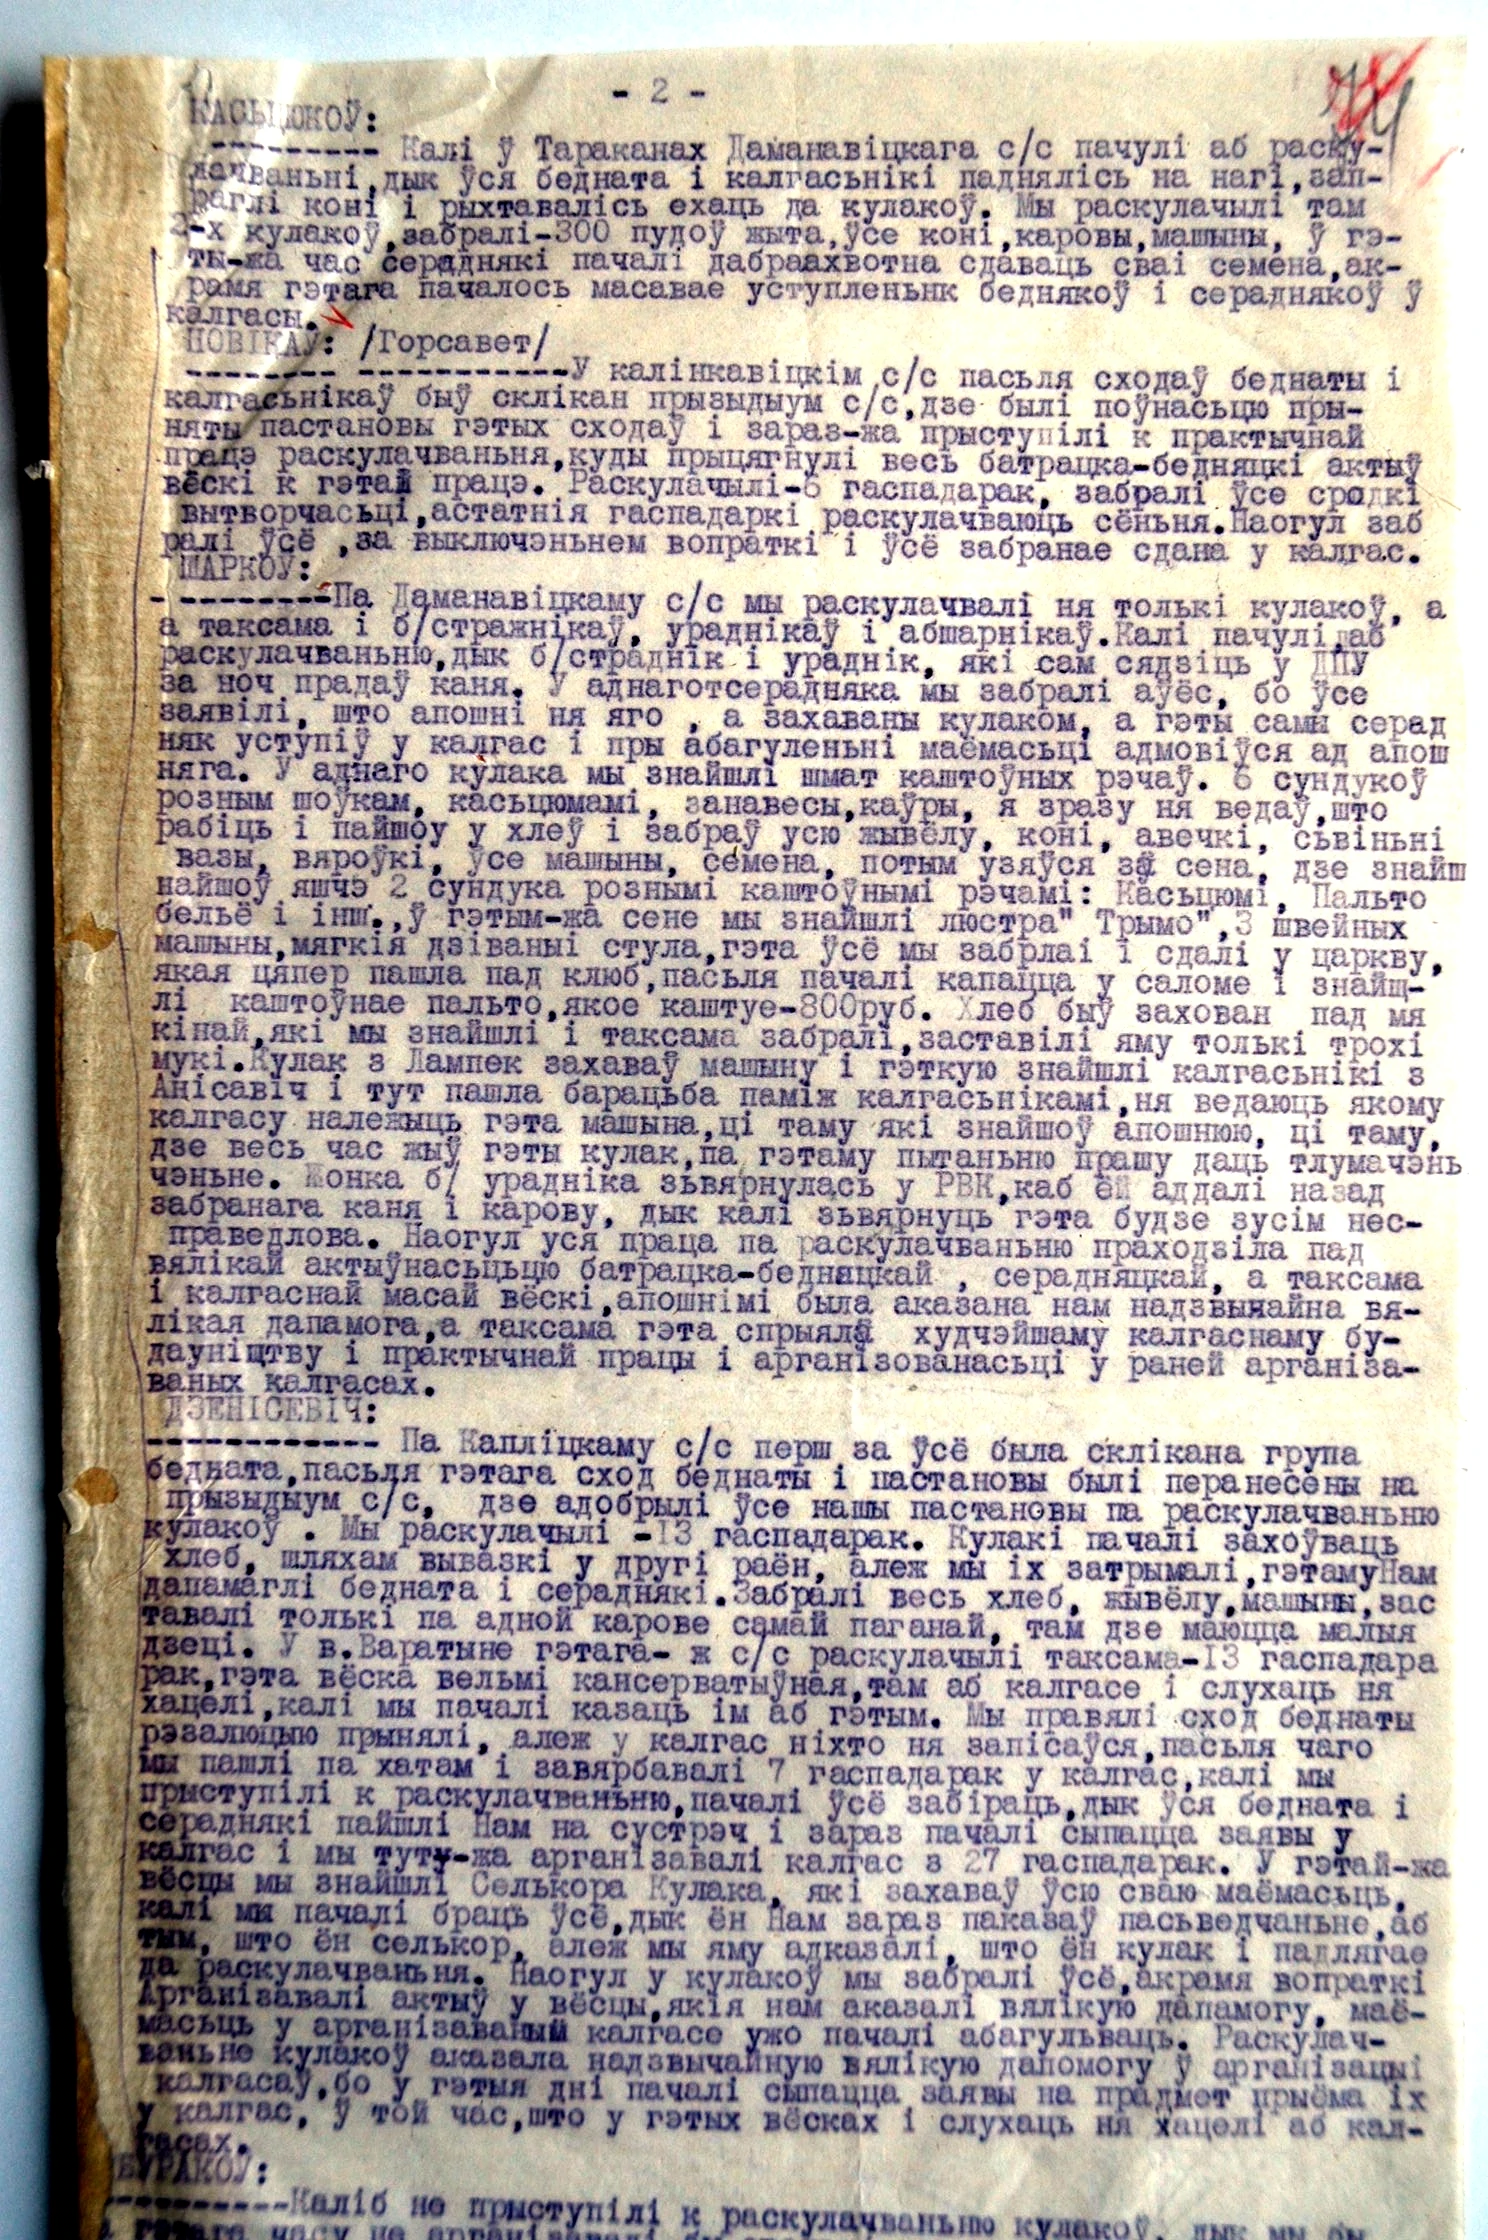 - 2 -
КАСЬЦЮКОЎ:
--------- Калі ў Тараканах Даманавіцкага с/с пачулі аб раску-
лачваньні,дык ўся бедната і калгасьнікі падняліcь на нагі,зап-
раглі коні і рыхтаваліcь ехаць да кулакоў. Мы раскулачылі там
2-х кулакоў,забралі-300 пудоў жыта,ўсе коні,каровы,машыны, ў гэ-
ты-жа час сераднякі пачалі дабраахвотна сдаваць сваі семена,ак-
рамя гэтага пачалось масавае уступленьнк беднякоў і сераднякоў ў
калгасы.
НОВІКАЎ: /Горсавет/
-------- -----------У калінкавіцкім с/с пасьля сходаў беднаты і
калгасьнікаў быў склікан прызыдыум с/с,дзе былі поўнасьцю пры-
няты пастановы гэтых сходаў і зараз-жа прыступілі к практычнай
працэ раскулачваньня,куды прыцягнулі весь батрацка-бедняцкі актыў
вёскі к гэтай працэ. Раскулачылі-6 гаспадарак, забралі ўсе сродкі
вытворчасьці,астатнія гаспадаркі раскулачваюць сёньня.Наогул заб
ралі ўсё ,за выключэньнем вопраткі і ўсё забранае сдана у калгас.
ШАРКОЎ:
- --------Па Даманавіцкаму с/с мы раскулачвалі ня толькі кулакоў, а
а таксама і б/стражнікаў, ураднікаў і абшарнікаў.Калі пачулі аб
раскулачваньню,дык б/страднік і ураднік, які сам сядзіць у ДПУ
за ноч прадаў каня. У аднаготсерадняка мы забралі аўёс, бо ўсе
заявілі, што апошні ня яго , а захаваны кулаком, а гэты самы серад
няк уступіў у калгас і пры абагуленьні маёмасьці адмовіўся ад апош
няга. У аднаго кулака мы знайшлі шмат каштоўных рэчаў. 6 сундукоў
розным шоўкам, касьцюмамі, занавесы,каўры, я зразу ня ведаў,што
рабіць і пайшоу у хлеў і забраў усю жывёлу, коні, авечкі, сьвіньні
вазы, вяроўкі, ўсе машыны, семена, потым узяўся за сена, дзе знайш
найшоў яшчэ 2 сундука рознымі каштоўнымі рэчамі: Касьцюмі, Пальто
бельё і інш.,ў гэтым-жа сене мы знайшлі люстра" Трымо",3 швейных
машыны,мягкія дзіваныі стула,гэта ўсё мы забрлаі і сдалі у царкву,
якая цяпер пашла пад клюб,пасьля пачалі капацца у саломе і знайщ-
лі каштоўнае пальто,якое каштуе-800руб. Хлеб быў захован пад мя
кінай,які мы знайшлі і таксама забралі,заставілі яму толькі трохі
мукі.Кулак з Лампек захаваў машыну і гэткую знайшлі калгасьнікі з
Анісавіч і тут пашла барацьба паміж калгасьнікамі,ня ведаюць якому
калгасу належыць гэта машына,ці таму які знайшоў апошнюю, ці таму,
дзе весь час жыў гэты кулак,па гэтаму пытаньню прашу даць тлумачэнь
чэньне. Жонка б/ урадніка зьвярнулась у РВК,каб ёй аддалі назад
забранага каня і карову, дык калі зьвярнуць гэта будзе зусім нес-
праведлова. Наогул уся праца па раскулачваньню праходзіла пад
вялікай актыўнасьцьцю батрацка-бедняцкай , серадняцкай, а таксама
і калгаснай масай вёскі,апошнімі была аказана нам надзвычайна вя-
лікая дапамога,а таксама гэта спрыяла худчэйшаму калгаснаму бу-
дауніщтву і практычнай працы і арганізованасьці у раней арганіза-
ваных калгасах.
ДЗЕНІСЕВІЧ:
------------ Па Капліцкаму с/с перш за ўсё была склікана група
бедната,пасьля гэтага сход беднаты і пастановы былі перанесены на
прызыдыум с/с, дзе адобрылі ўсе нашы пастановы па раскулачваньню
кулакоў . Мы раскулачылі -13 гаспадарак. Кулакі пачалі захоўваць
хлеб, шляхам вывазкі у другі раён, алеж мы іх затрымалі,гэтамуНам
дапамаглі бедната і сераднякі.Забралі весь хлеб, жывёлу,машыны,зас
тавалі толькі па адной карове самай паганай, там дзе маюцца малыя
дзеці. У в.Варатыне гэтага- ж с/с раскулачылі таксама-13 гаспадара
рак,гэта вёска вельмі кансерватыўная,там аб калгасе і слухаць ня
хацелі,калі мы пачалі казаць ім аб гэтым. Мы правялі сход беднаты
рэзалюцыю прынялі, алеж у калгас ніхто ня запісаўся,пасьля чаго
мы пашлі па хатам і завярбавалі 7 гаспадарак у калгас,калі мы
прыступілі к раскулачваньню,пачалі ўсё забіраць,дык ўся бедната і
сераднякі пайшлі Нам на сустрэч і зараз пачалі сыпацца заявы у
калгас і мы туту-жа арганізавалі калгас з 27 гаспадарак. У гэтай-жа
вёсцы мы знайшлі Селькора Кулака, які захаваў ўсю сваю маёмасьць,
калі мы пачалі браць ўсё,дык ён Нам зараз паказаў пасьведчаньне,аб
тым, што ён селькор, алеж мы яму адказалі, што ён кулак і падлягае
да раскулачваньня. Наогул у кулакоў мы забралі ўсё,акрамя вопраткі
Арганізавалі актыў у вёсцы,якія нам аказалі вялікую дапамогу, маё-
масьць у арганізаваный калгасе ужо пачалі абагульваць. Раскулач-
ваньне кулакоў аказала надзвычайную вялікую дапомогу ў арганізацыі
калгасаў,бо у гэтыя дні пачалі сыпацца заявы на прадмет прыёма іх
у калгас, ў той час,што у гэтых вёсках і слухаць ня хацелі аб кал-
гасах.
БУРАКОЎ:
----------Каліб не прыступілі к раскулачваньню кулакоў, дык мы бы
гэтага часу не